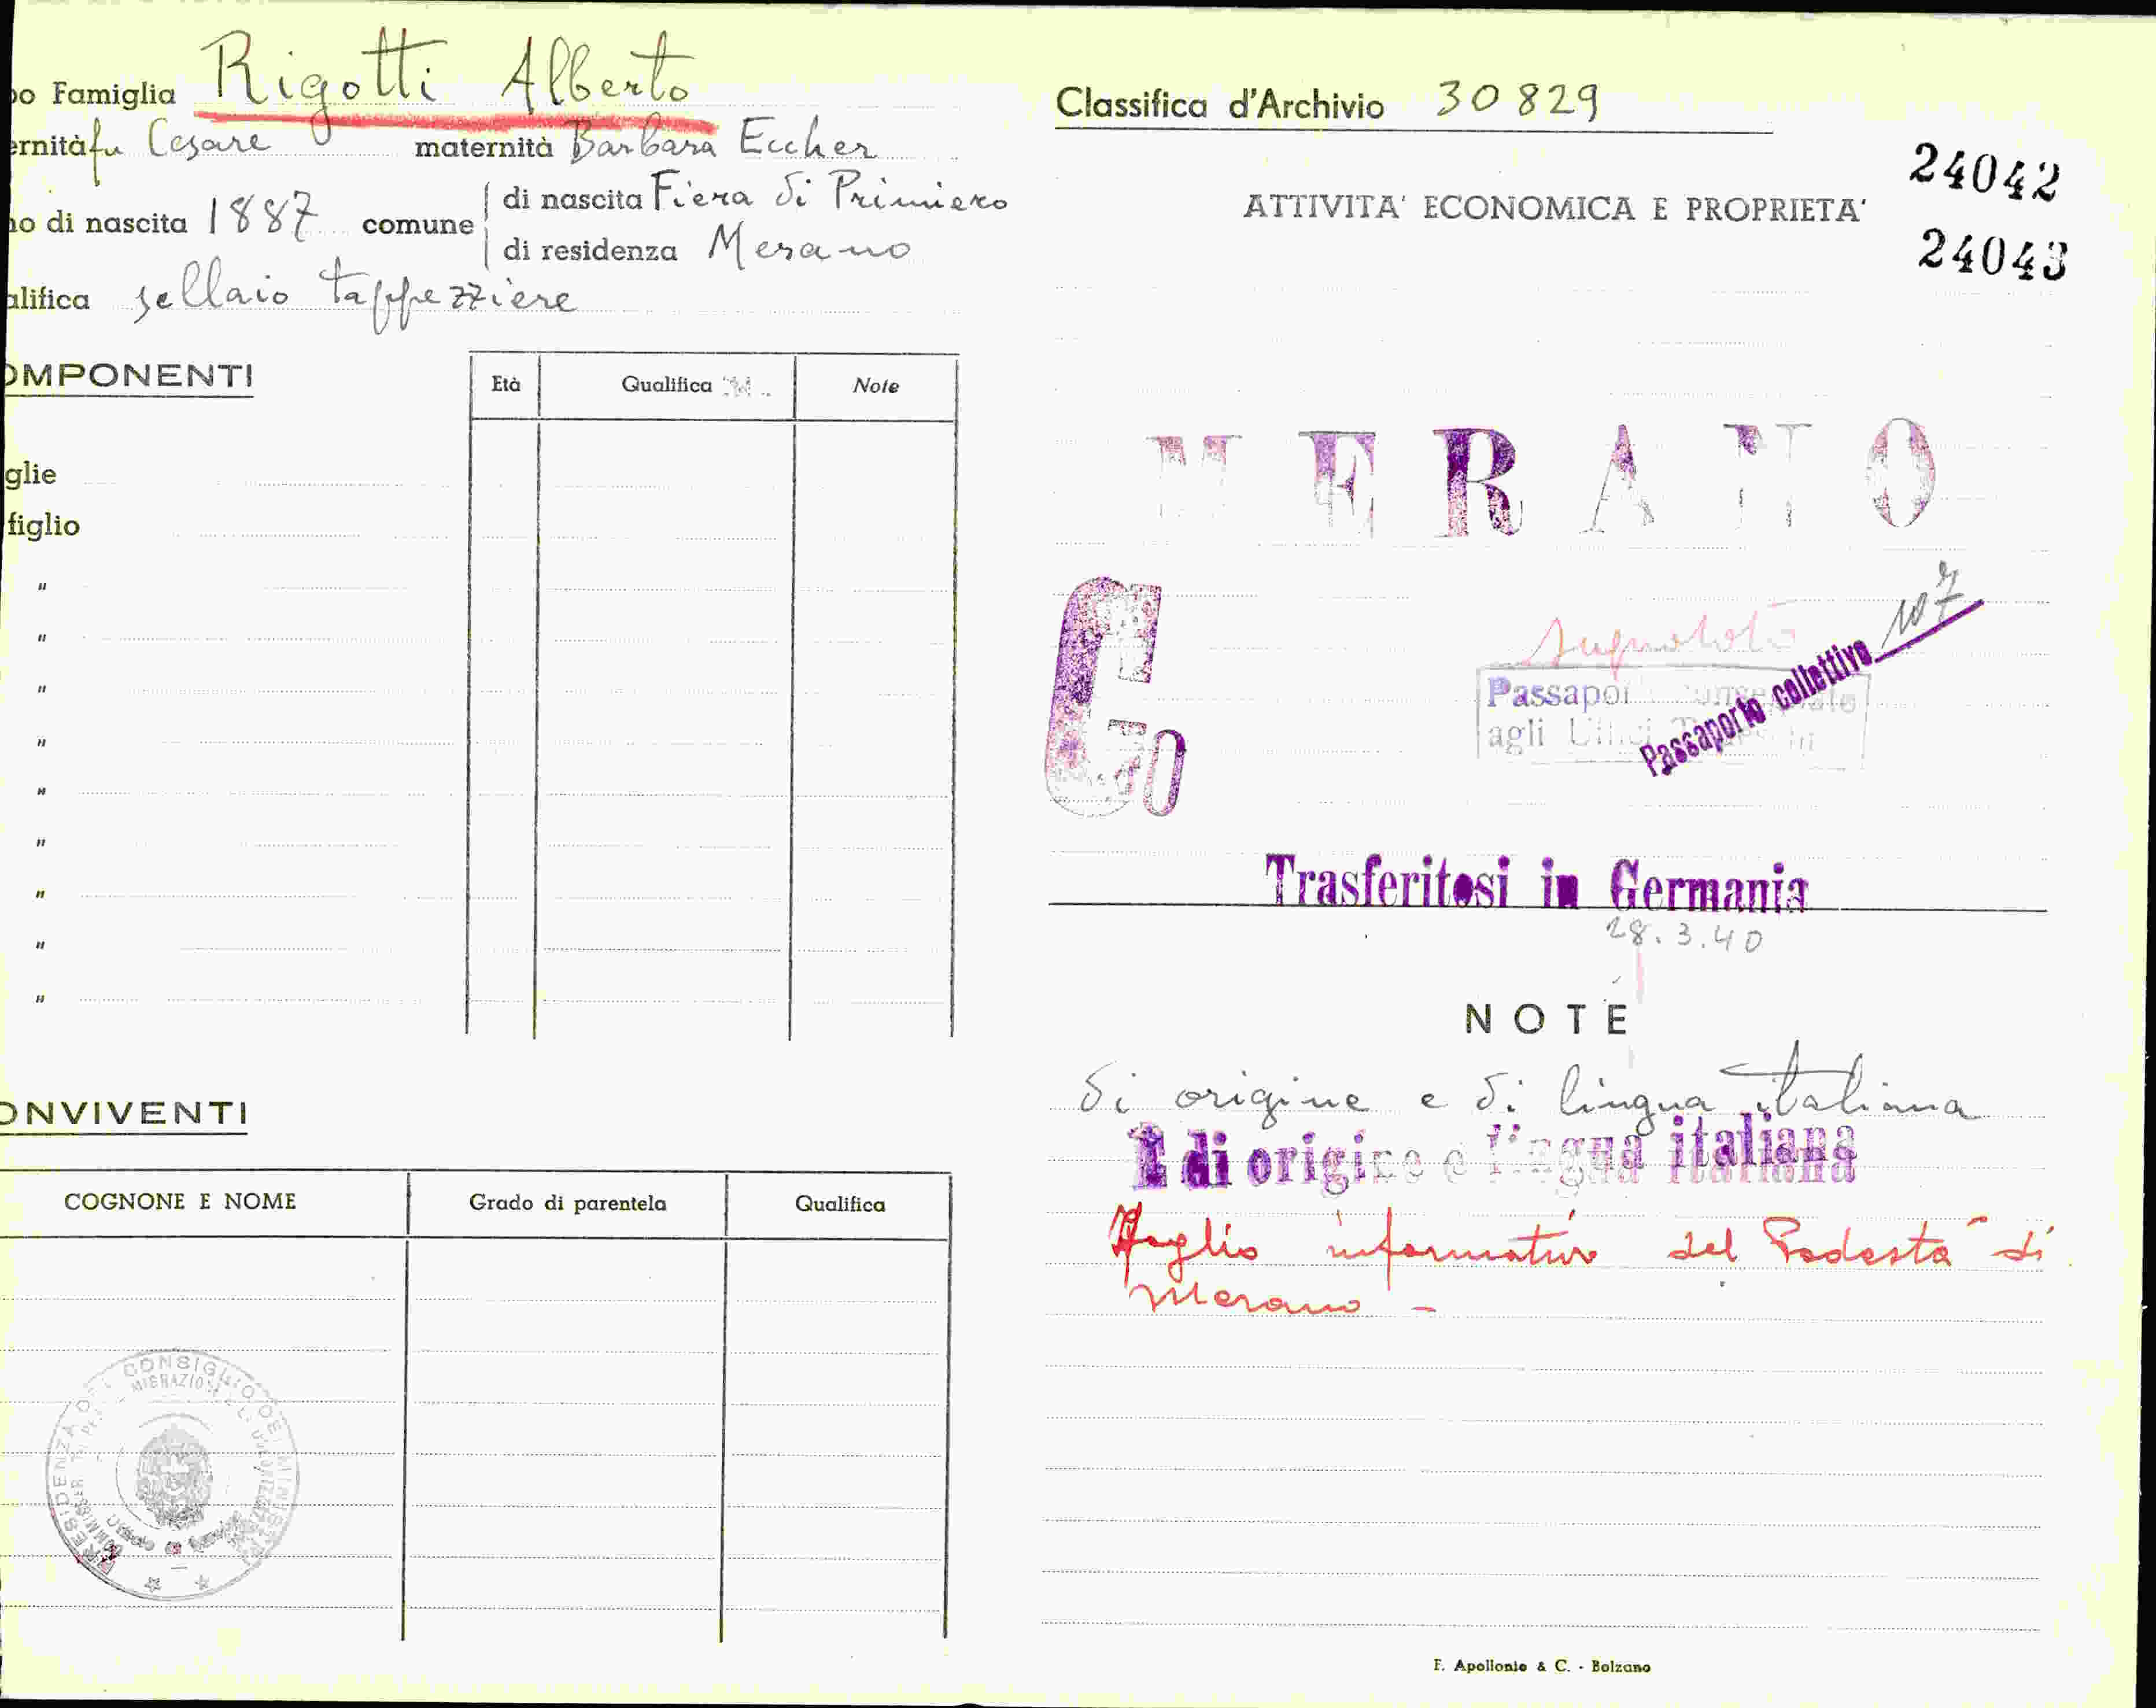 po Famiglia Rigotti Alberto
ernità fu Cesare maternità Barbara Eccher
no di nascita 1887 comune di nascita Fiera di Primiero
di residenza Merano
alifica sellaio tappezziere
OMPONENTI
Età Qualifica Note
glie
figlio
"
"
"
"
"
"
"
"
"
ONVIVENTI
COGNONE E NOME Grado di parentela Qualifica
PRESIDENZA DEL CONSIGLIO DEI MINISTRI
Classifica d'Archivio 30829
24042
ATTIVITA' ECONOMICA E PROPRIETA'
24043
MERANO
G
Passaporto collettivo 107
Passapor
agli
Trasferitosi in Germania
28.3.40
NOTE
di origine e di lingua italiana
È di origine e lingua italiana
Foglio informativo del Podestà di
Merano -
F. Apollonio & C. - Bolzano